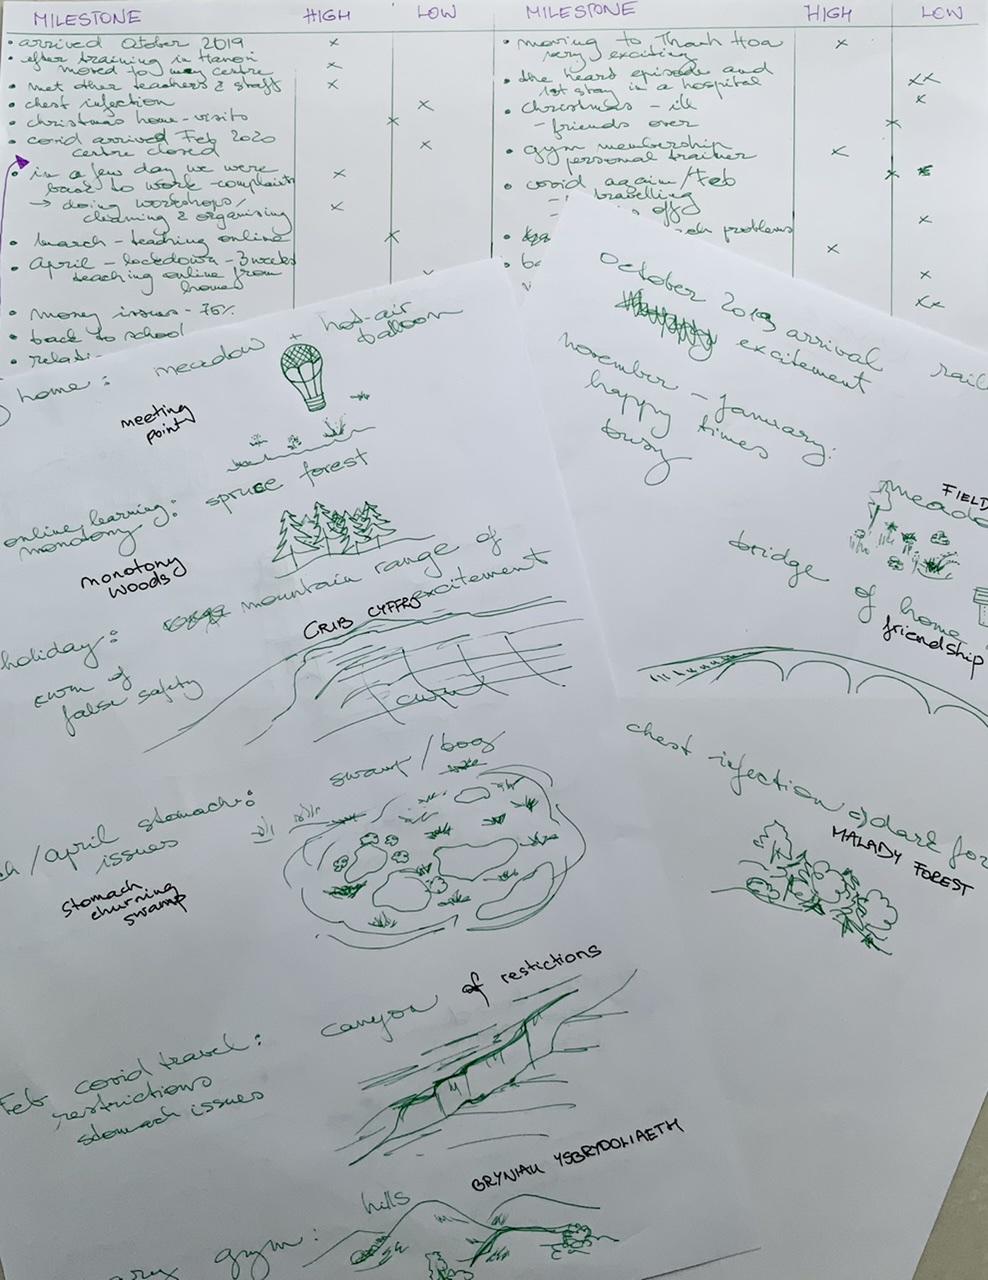 MILESTONE HIGH LOW
• arrived October 2019
• after training in Hanoi
moved to my centre
• met other teachers & staff
• chest infection
• christmas home-visits
• covid arrived Feb 2020
centre closed
• in a few day we were
back to work - complaints
→ doing workshops/
cleaning & organising
• March - teaching online
• April - lockdown - 3 weeks
teaching online from
home
• money issues - 75%
• back to school
• relati-
MILESTONE HIGH LOW
• moving to Thanh Hoa
very exciting
• the heart episode and
1st stay in a hospital
• Christmas - ill
- friends over
• gym membership
personal trainer
• covid again/Feb
- travelling
off
problems
home: meadow + hot-air
balloon
meeting
point
online learning: spruce forest
monotony
monotony
woods
holiday: mountain range of
excitement
CRIB CYFFRO
cwm of
false safety
cwm
swamp/bog
/april stomach:
issues
stomach
churning
swamp
canyon of restictions
Feb covid travel:
restrictions
stomach issues
BRYNIAU YSBRYDOLIAETH
hills
gym:
October 2019 arrival
excitement
november - january:
happy times
busy
FIELD
meado
bridge of home
friendship
chest infection → dark for
MALADY FOREST